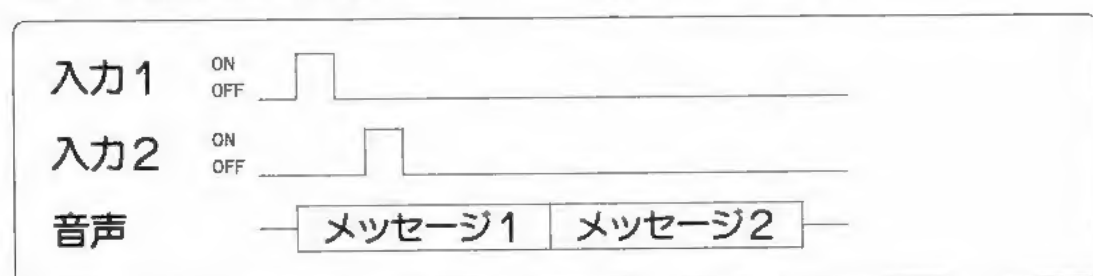 入力1 ON
OFF
入力2 ON
OFF
音声 メッセージ1 メッセージ2